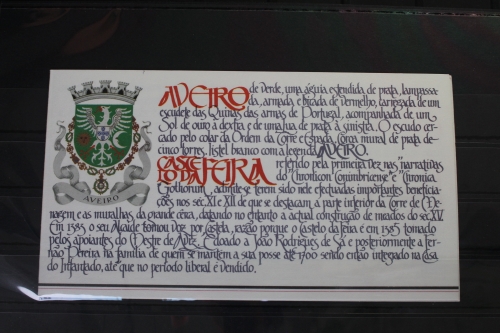 AVEIRO
AVEIRO de verde, uma águia estendida de prata, lampassa-
da, armada e bicada de vermelho, carregada de um
escudete das Quinas das armas de Portugal, acompanhada de um
Sol de ouro à dextra e de uma lua de prata à sinistra. O escudo cer-
cado pelo colar da Ordem da Torre e Espada. Coroa mural de prata de
cinco torres, listel branco com a legenda AVEIRO.
CASTELO DA FEIRA referido pela primeira vez nas narrativas
do "Chronicon Conimbricense" e "Cronica
Gothorum", admite-se terem sido nele efectuadas importantes beneficia-
ções nos séc. XI e XII de que se destacam a parte inferior da Torre de Me-
nagem e as muralhas da grande cêrca, datando no entanto a actual construção de miados do séc. XV.
Em 1383 o seu Alcaide tomou voz por Castela, razão porque o Castelo da Feira é em 1385 tomado
pelos apoiantes do Mestre de Aviz. É doado a João Rodrigues de Sá e posteriormente a Fer-
não Pereira na família de quem se mantem a sua posse até 1700 sendo então integrado na Casa
do Infantado, até que no período liberal é vendido.